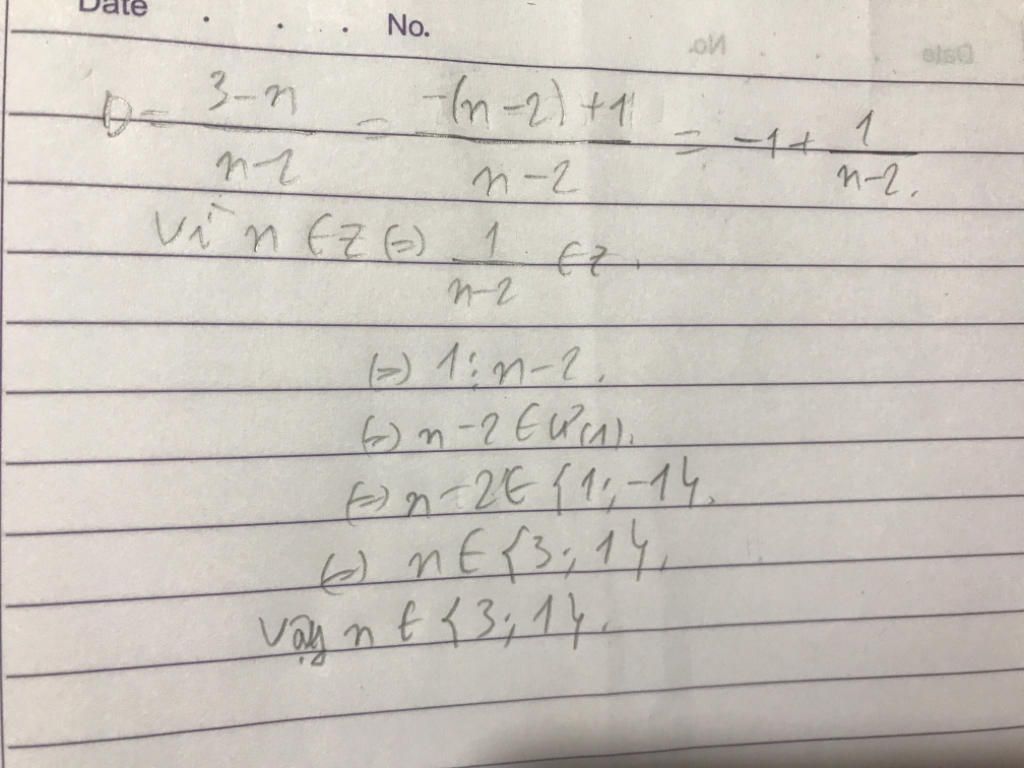 Date . . . No.
D = \frac{3-n}{n-2} = \frac{-(n-2)+1}{n-2} = -1 + \frac{1}{n-2}.
Vì n ∈ Z (=) \frac{1}{n-2} ∈ Z.
(=) 1 ⋮ n-2.
(=) n-2 ∈ Ư(1).
(=) n-2 ∈ {1; -1}.
(=) n ∈ {3; 1}.
Vậy n ∈ {3; 1}.